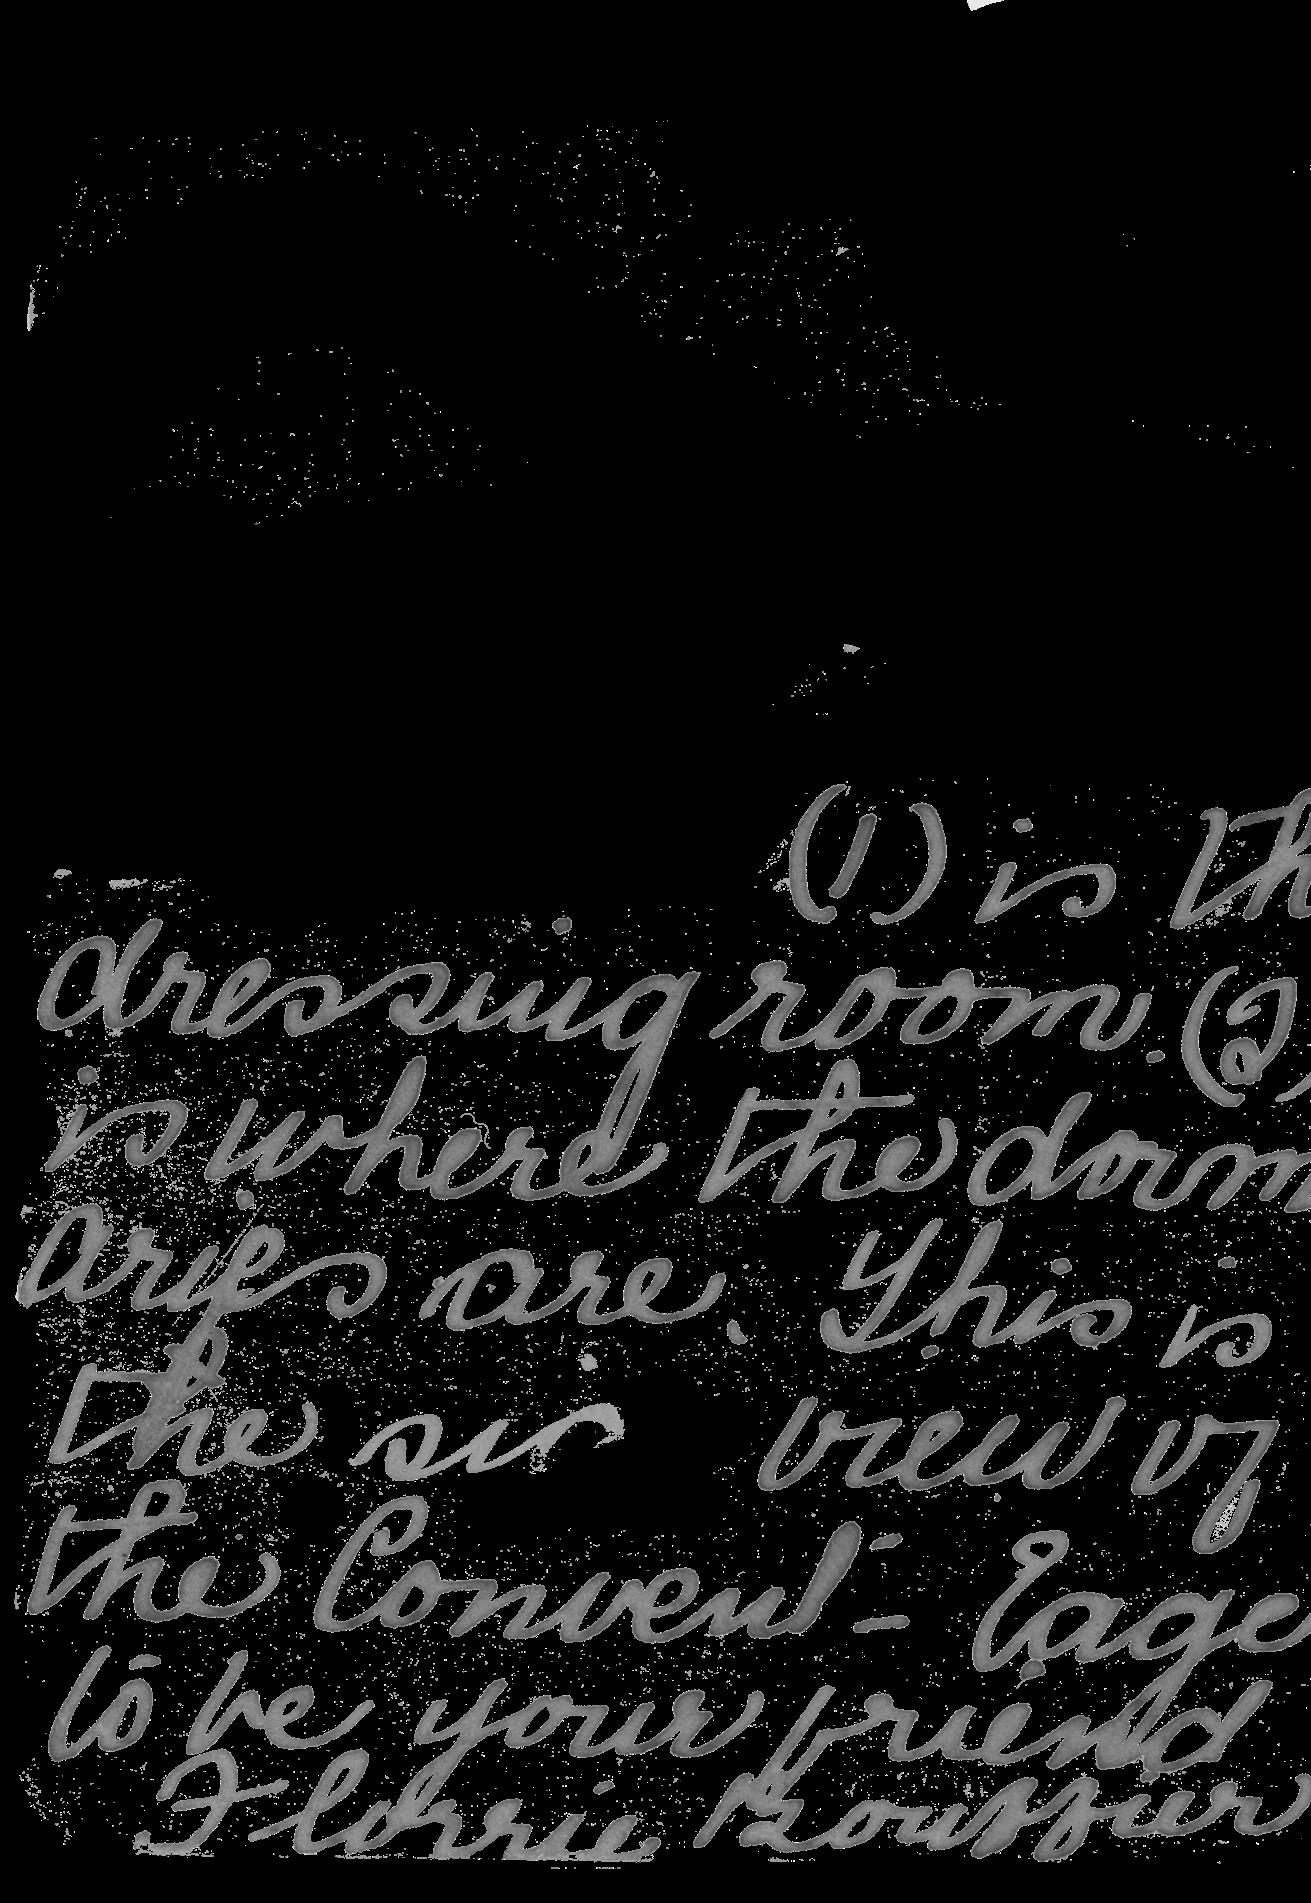 (1) is th
dressing room. (2)
is where the dorm
aries are. This is
the view of
the Convent - Eage
to be your friend
Florrie